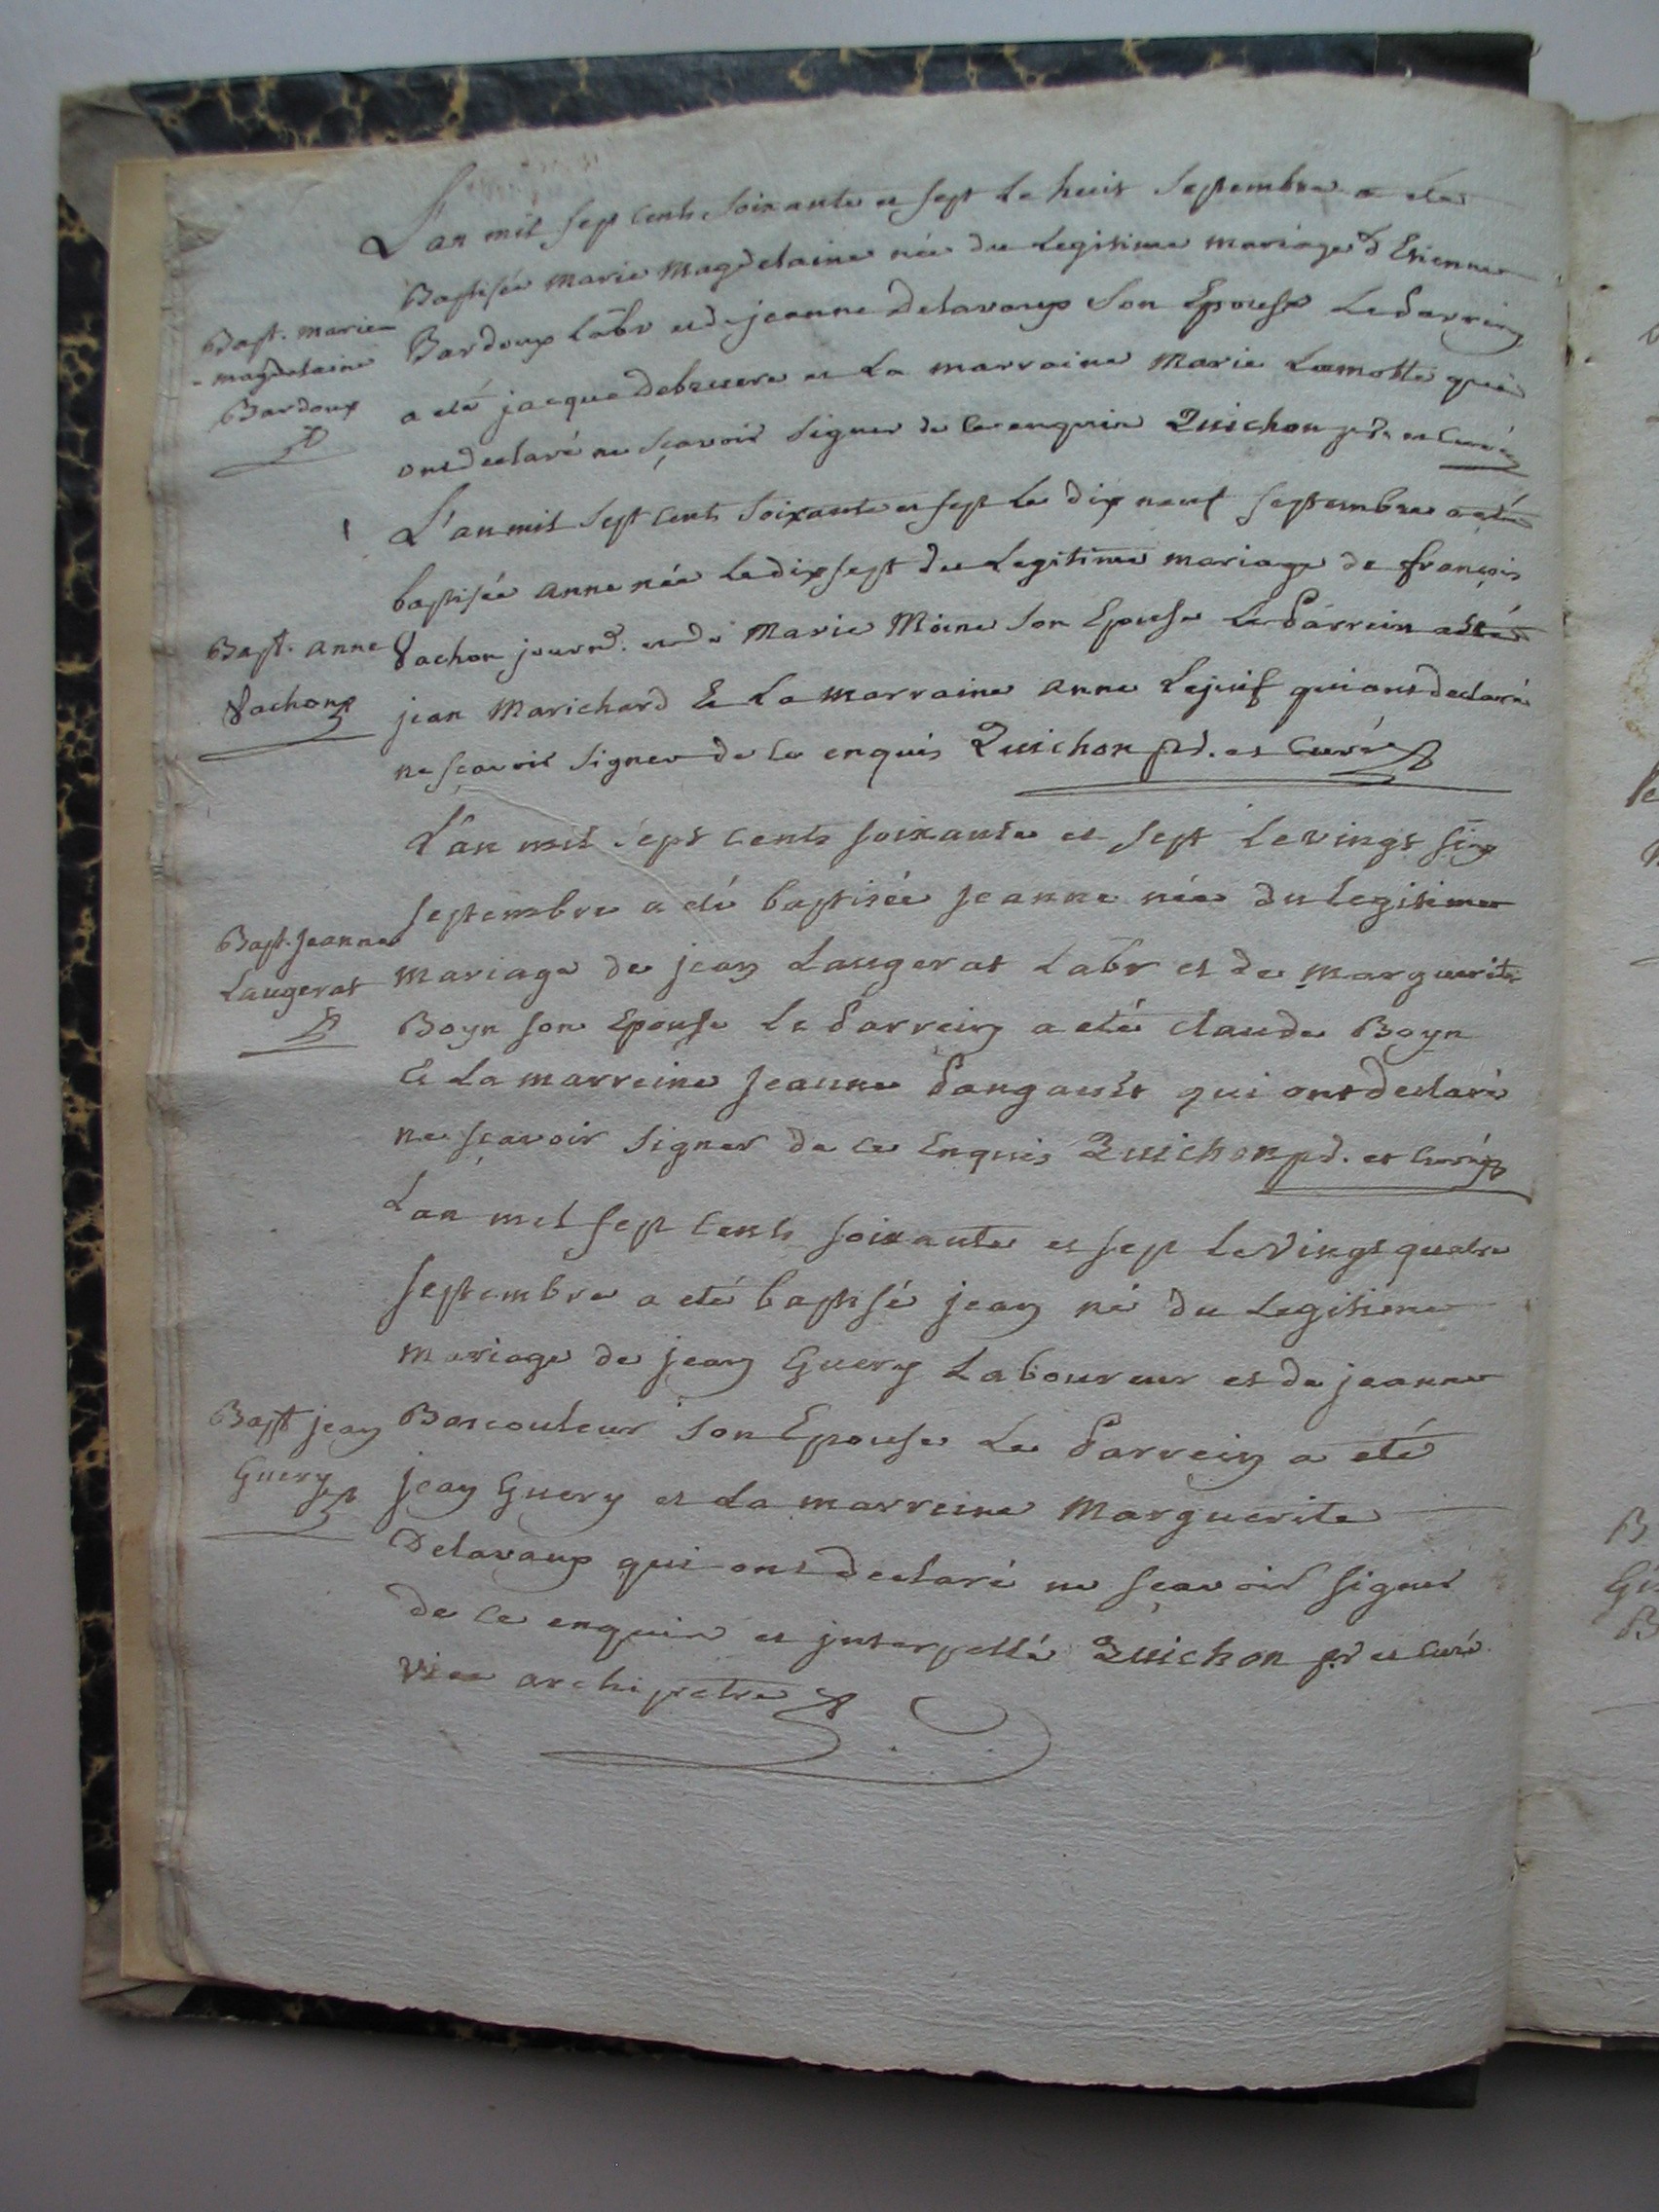 L'an mil sept cents soixante et sept le huit septembre a eté
Bapt. marie
magdelaine
Bardoux
Baptisée marie magdelaine née du legitime mariage d'Etienne
Bardoux labr et de jeanne Delavaux son Epouse Le Parrein
a eté jacque et La marraine Marie Lamotte qui
ont declaré ne sçavoir signer de ce enquis Quichon et curé
L'an mil sept cents soixante et sept le dix neuf septembre a eté
baptisée anne née le dix sept du Legitime mariage de françois
Bapt. anne
Vachon
Vachon journ. et de Marie Moine son Epouse Le Parrein a eté
jean Marichard Et La marraine anne Lejuif qui ont declaré
ne sçavoir signer de ce enquis Quichon pr. et curé
L'an mil sept cents soixante et sept le vingt six
septembre a eté baptisée jeanne née du legitime
Bapt. jeanne
Laugerat
mariage de jean Laugerat Labr et de marguerite
Boyn son Epouse le Parrein a eté claude Boyn
Et La marreine jeanne qui ont declaré
ne sçavoir signer de ce Enquis Quichon pr. et curé
L'an mil sept cents soixante et sept le vingt quatre
septembre a eté baptisé jean né du Legitime
mariage de jean Guery Laboureur et de jeanne
Bapt jean
Guery
Bascouleur son Epouse Le Parrein a eté
jean Guery et La marreine Marguerite
Delavaux qui ont declaré ne sçavoir signer
de ce enquis et interpellé Quichon pr et curé
vice archipretre